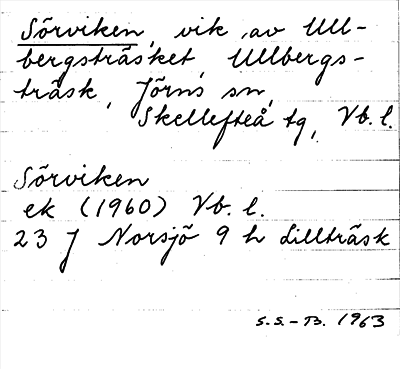 Sörviken, vik av Ull-
bergsträsket, Ullbergs-
träsk, Jörns sn,
Skellefteå tg, Vb. l.
Sörviken
ek (1960) Vb. l.
23 J Norsjö 9 h Lillträsk
S.S.-B. 1963